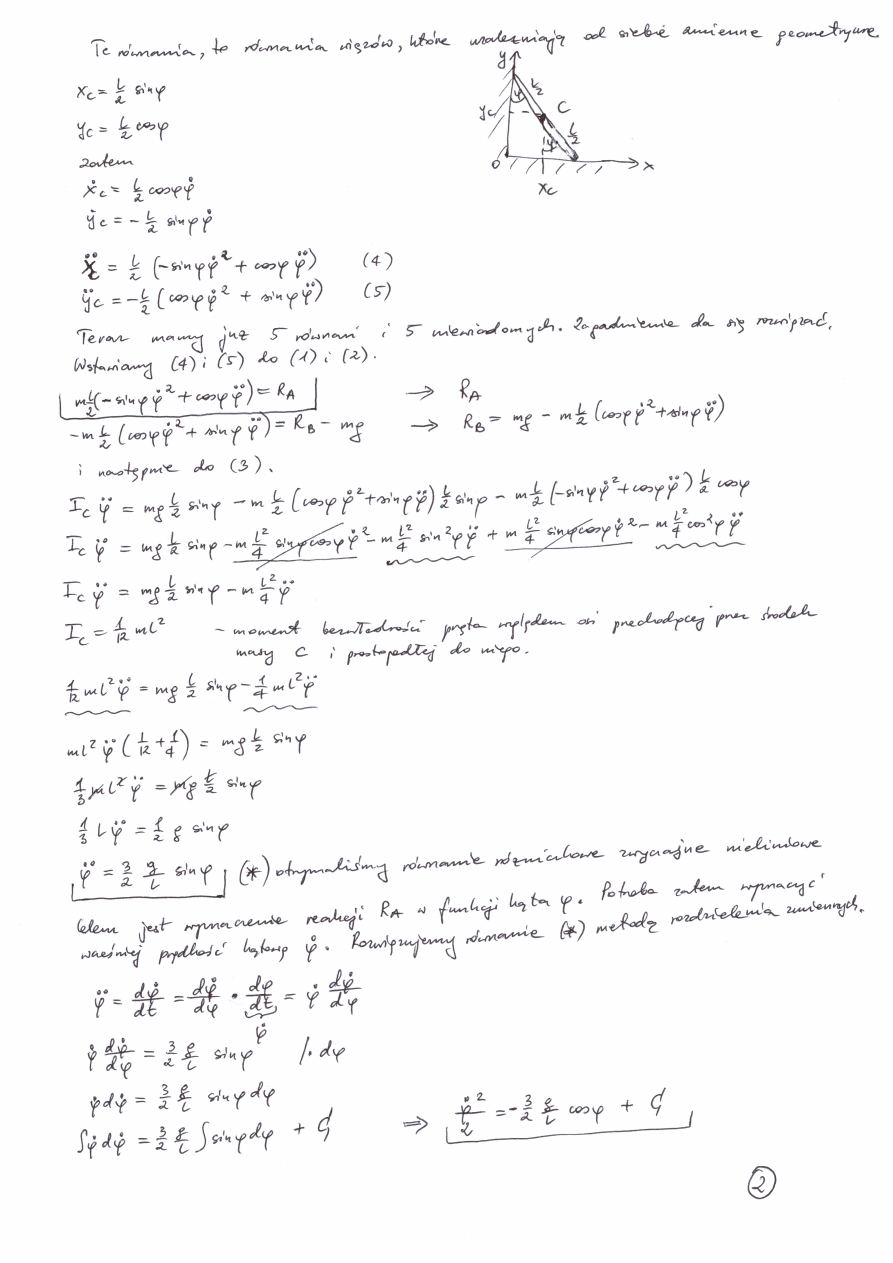 Te równania, to równania więzów, które uzależniają od siebie zmienne geometryczne.
x_C = L/2 sinφ
y_C = L/2 cosφ
zatem
ẋ_C = L/2 cosφ φ̇
ẏ_C = - L/2 sinφ φ̇
y
φ
L/2
y_C
C
L/2
φ
0
x
x_C
ẍ_C = L/2 (-sinφ φ̇² + cosφ φ̈) (4)
ÿ_C = -L/2 (cosφ φ̇² + sinφ φ̈) (5)
Teraz mamy już 5 równań i 5 niewiadomych. Zagadnienie da się rozwiązać.
Wstawiamy (4) i (5) do (1) i (2).
m L/2 (-sinφ φ̇² + cosφ φ̈) = R_A → R_A
-m L/2 (cosφ φ̇² + sinφ φ̈) = R_B - mg → R_B = mg - m L/2 (cosφ φ̇² + sinφ φ̈)
i następnie do (3).
I_C φ̈ = mg L/2 sinφ - m L/2 (cosφ φ̇² + sinφ φ̈) L/2 sinφ - m L/2 (-sinφ φ̇² + cosφ φ̈) L/2 cosφ
I_C φ̈ = mg L/2 sinφ - m L²/4 sinφcosφ φ̇² - m L²/4 sin²φ φ̈ + m L²/4 sinφcosφ φ̇² - m L²/4 cos²φ φ̈
I_C φ̈ = mg L/2 sinφ - m L²/4 φ̈
I_C = 1/12 ml² - moment bezwładności pręta względem osi przechodzącej przez środek
masy C i prostopadłej do niego.
1/12 ml² φ̈ = mg L/2 sinφ - 1/4 ml² φ̈
ml² φ̈ (1/12 + 1/4) = mg L/2 sinφ
1/3 ml² φ̈ = mg L/2 sinφ
1/3 L φ̈ = 1/2 g sinφ
φ̈ = 3/2 g/L sinφ (*) otrzymaliśmy równanie różniczkowe zwyczajne nieliniowe
Celem jest wyznaczenie reakcji R_A w funkcji kąta φ. Potrzeba zatem wyznaczyć
wcześniej prędkość kątową φ̇. Rozwiązujemy równanie (*) metodą rozdzielenia zmiennych.
φ̈ = dφ̇/dt = dφ̇/dφ · dφ/dt = φ̇ dφ̇/dφ
φ̇
φ̇ dφ̇/dφ = 3/2 g/L sinφ /· dφ
φ̇dφ̇ = 3/2 g/L sinφdφ
∫φ̇dφ̇ = 3/2 g/L ∫sinφdφ + C₁ ⇒ φ̇²/2 = -3/2 g/L cosφ + C₁
2